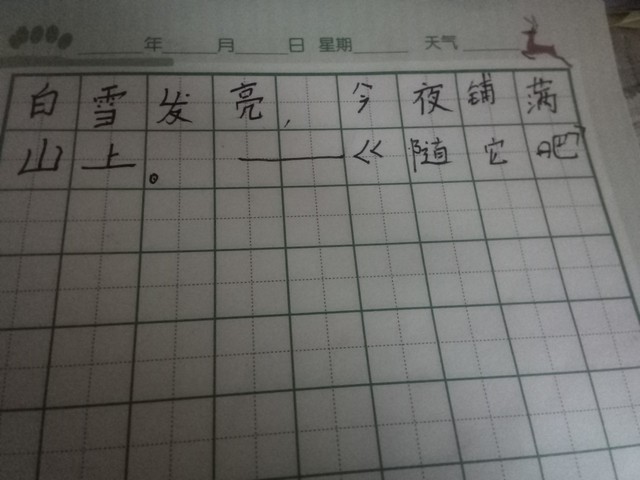 年 月 日 星期 天气
白雪发亮，今夜铺满
山上。——《随它吧》